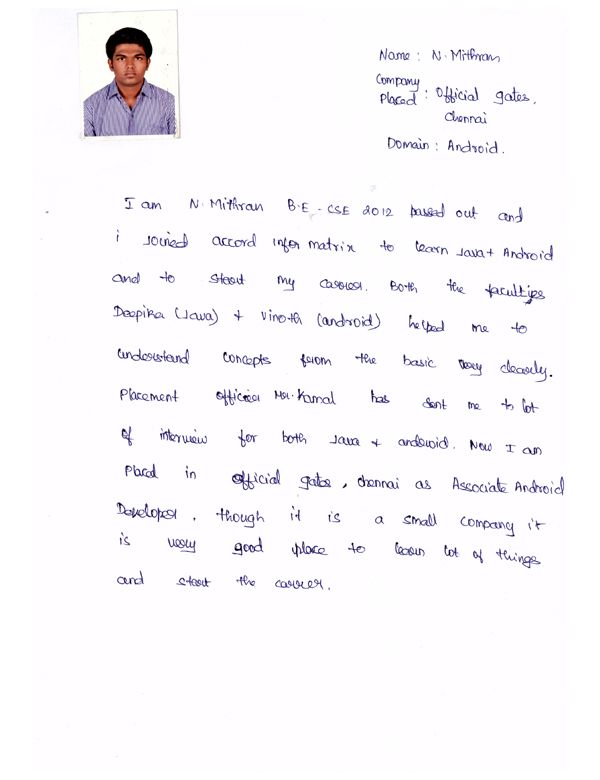 Name : N. Mithran
Company
Placed : Official gates,
Chennai
Domain : Android.
I am N. Mithran B.E - CSE 2012 passed out and
i Joined accord infor matrix to learn Java + Android
and to start my carrier. Both the faculties
Deepika (Java) + Vinoth (android) helped me to
understand concepts from the basic very clearly.
Placement officier Mr. Kamal has sent me to lot
of interview for both Java + android. Now I am
Placed in official gates, Chennai as Associate Android
Developer, though it is a small company it
is very good place to learn lot of things
and start the carrier.